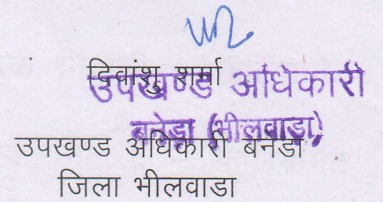 दिवांशु शर्मा
उपखण्ड अधिकारी
बनेडा (भीलवाडा)
उपखण्ड अधिकारी बनेडा
जिला भीलवाडा